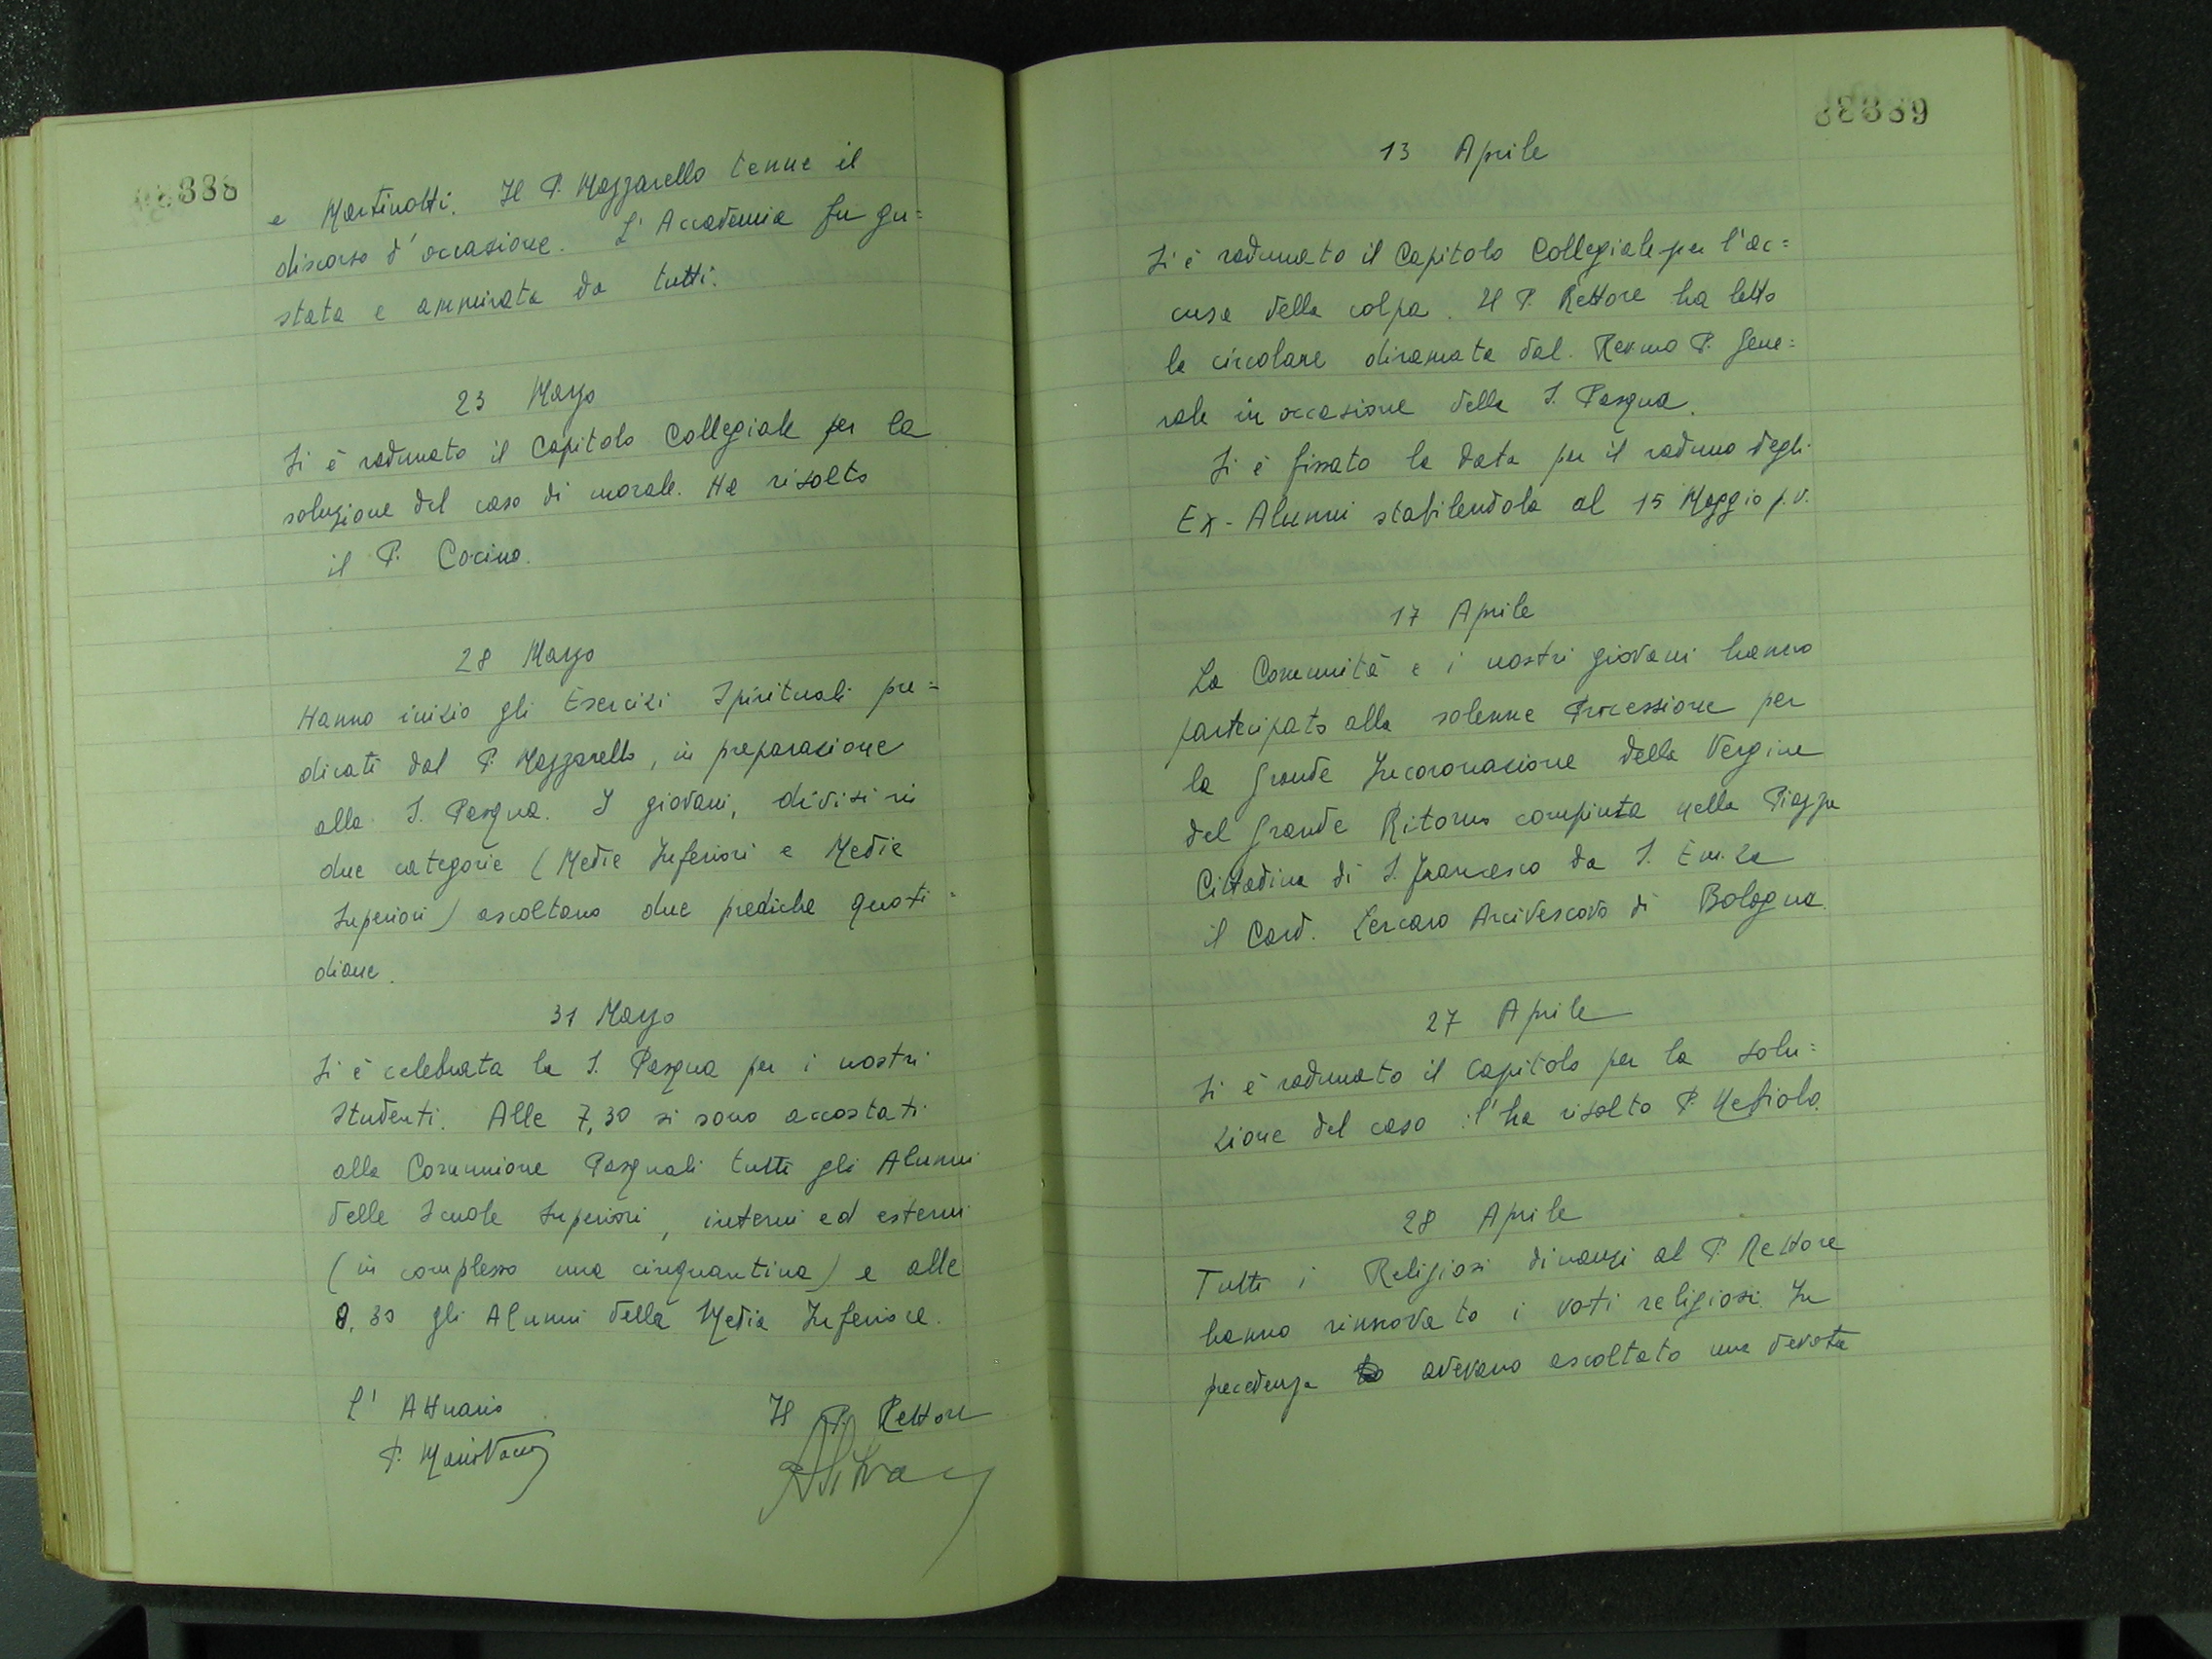 388
e Martinotti. Il P. Mazzarello tenne il
discorso d'occasione. L'Accademia fu gu=
stata e ammirata da tutti.
23 Marzo
Si è radunato il Capitolo Collegiale per la
soluzione del caso di morale. Ha risolto
il P. Cocino.
28 Marzo
Hanno inizio gli Esercizi Spirituali pre=
dicati dal P. Mazzarello, in preparazione
alla S. Pasqua. I giovani, divisi in
due categorie (Medie Inferiori e Medie
Superiori) ascoltano due prediche quoti=
diane.
31 Marzo
Si è celebrata la S. Pasqua per i nostri
Studenti. Alle 7,30 si sono accostati
alla Comunione Pasquali tutti gli Alunni
delle Scuole Superiori, interni ed esterni
(in complesso una cinquantina) e alle
8,30 gli Alunni della Media Inferiore.
L'Attuario Il P. Rettore
P.
389
13 Aprile
Si è radunato il Capitolo Collegiale per l'ac=
cusa della colpa. Il P. Rettore ha letto
la circolare diramata dal Rev.mo P. Gene=
rale in occasione della S. Pasqua.
Si è fissato la data per il raduno degli
Ex-Alunni stabilendola al 15 Maggio p.v.
17 Aprile
La Comunità e i nostri giovani hanno
partecipato alla solenne Processione per
la Grande Incoronazione della Vergine
del Grande Ritorno compiuta nella Piazza
Cittadina di S. Francesco da S. Em.za
il Card. Lercaro Arcivescovo di Bologna.
27 Aprile
Si è radunato il Capitolo per la solu=
zione del caso: l'ha risolto P. Mefiolo.
28 Aprile
Tutti i Religiosi dinanzi al P. Rettore
hanno rinnovato i voti religiosi. In
precedenza avevano ascoltato una devota